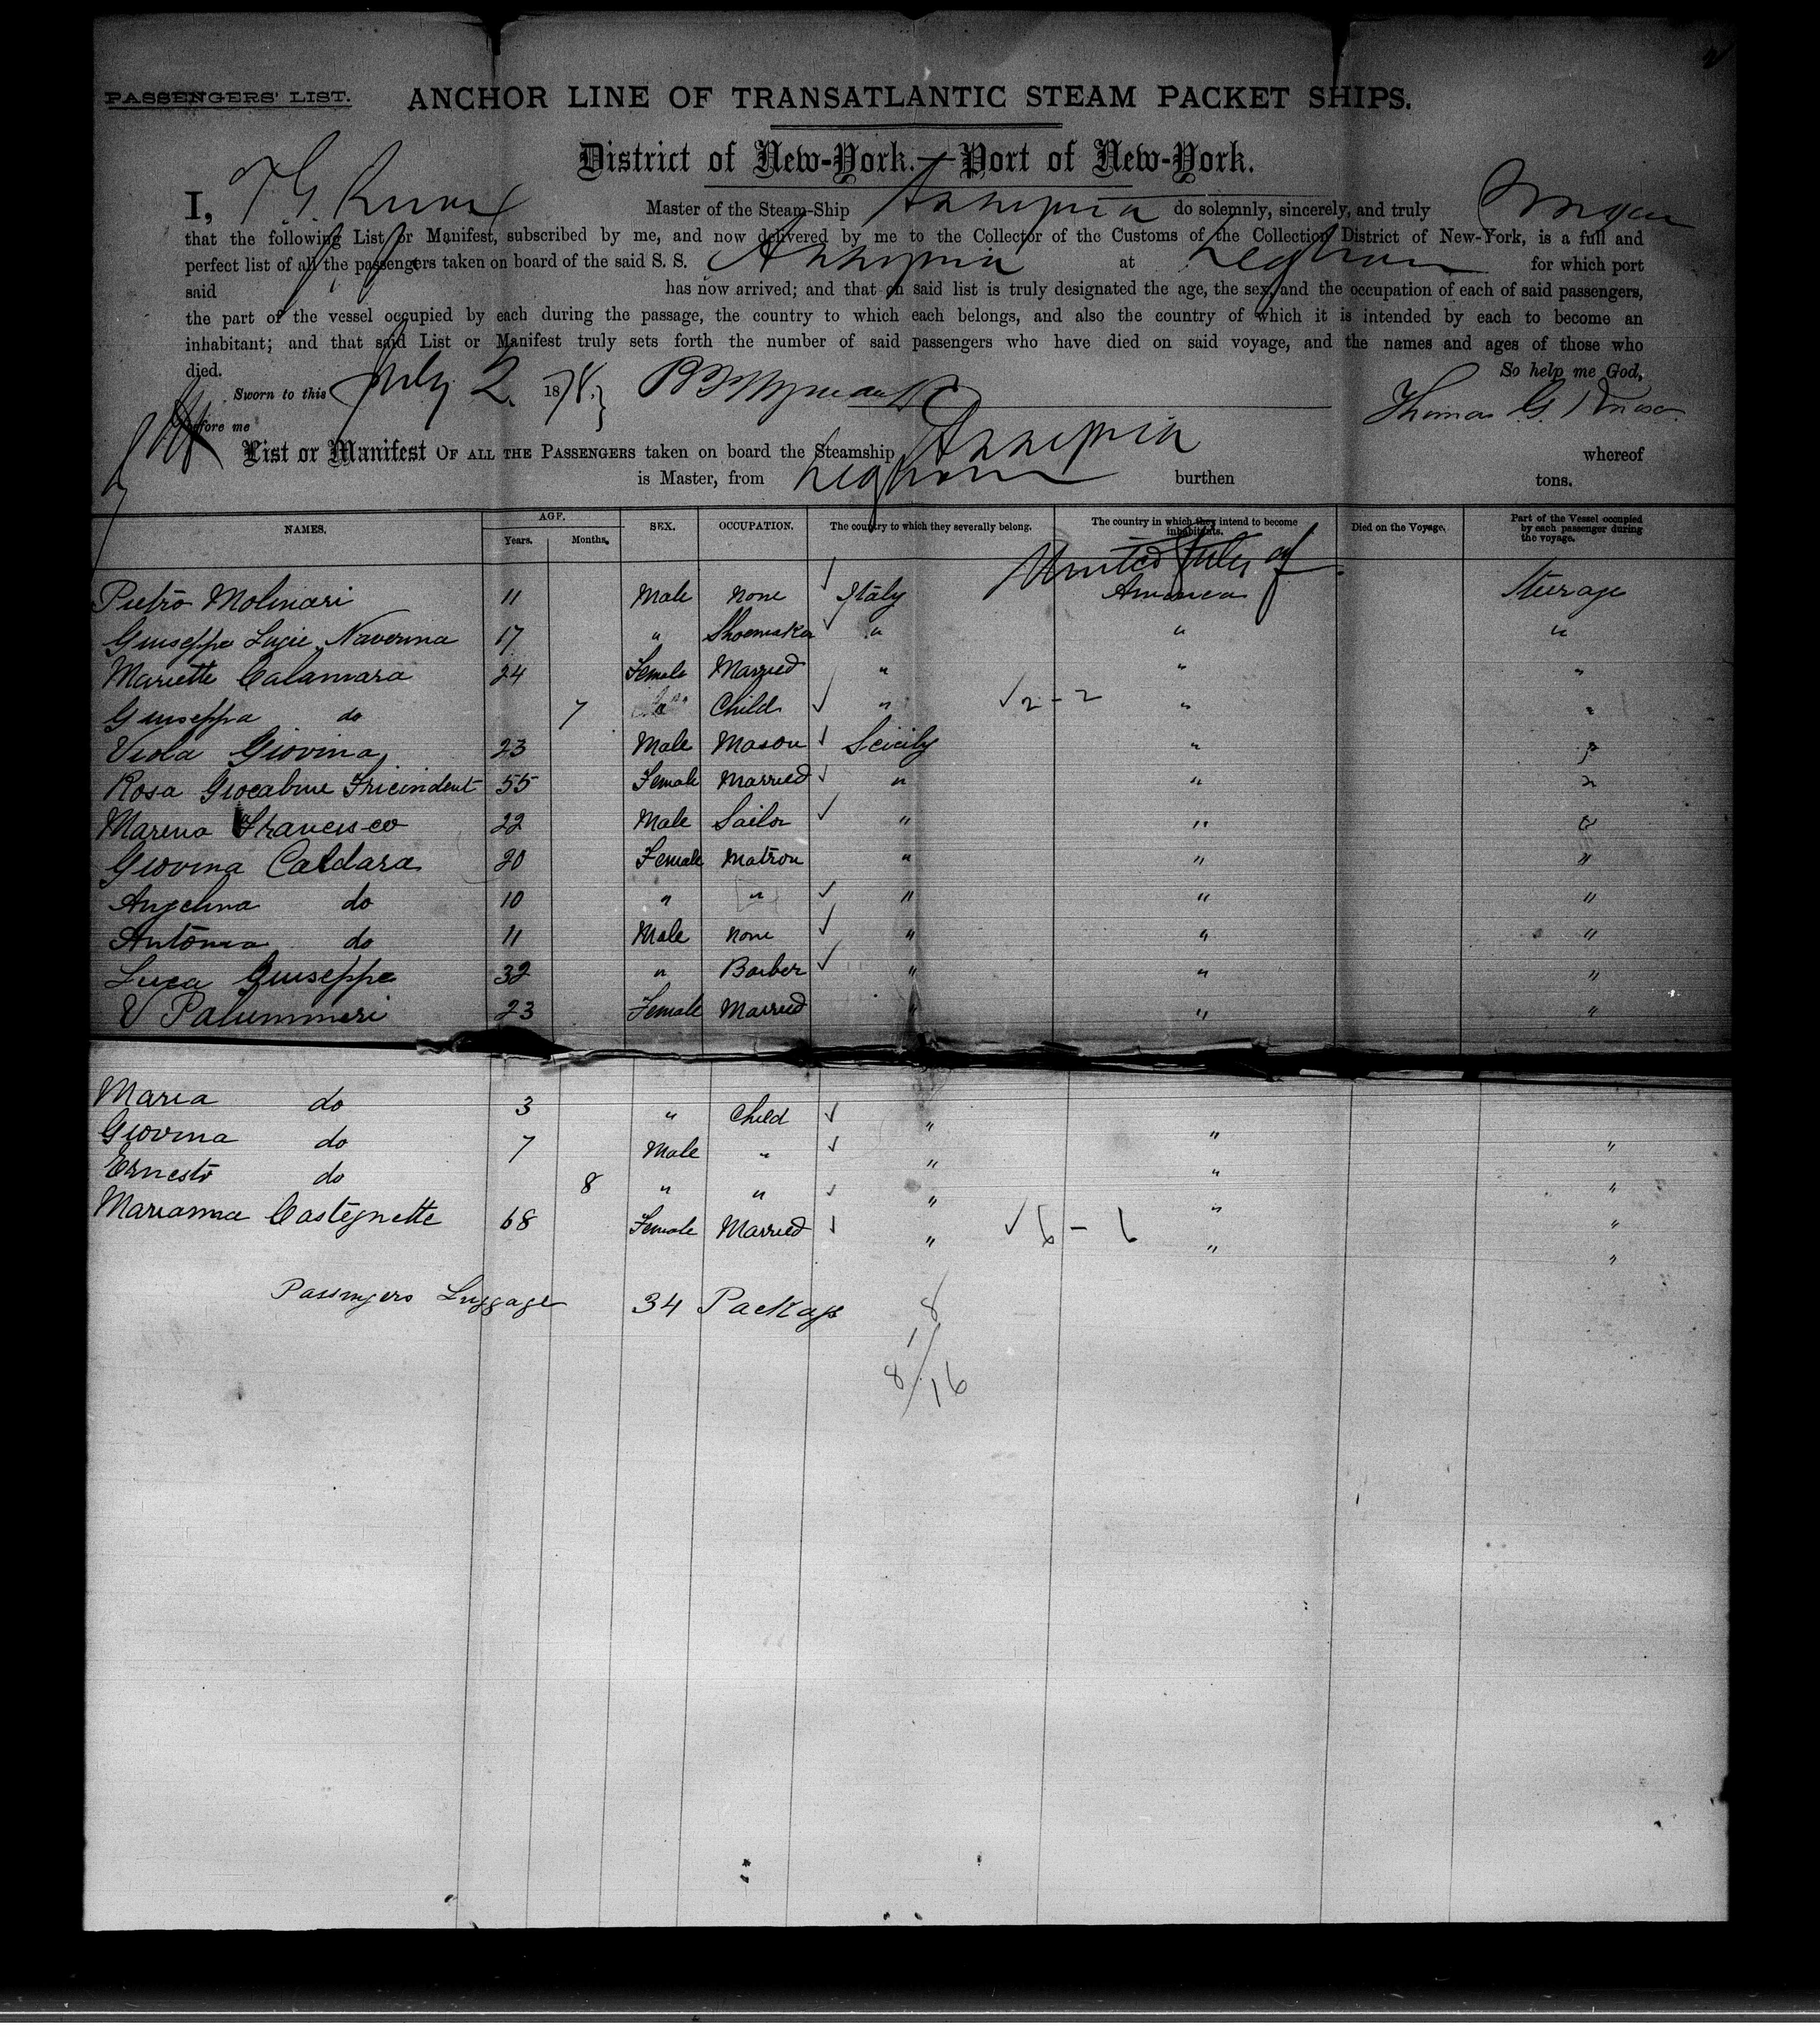 PASSENGERS' LIST.
ANCHOR LINE OF TRANSATLANTIC STEAM PACKET SHIPS.
District of New-York.—Port of New-York.
I, T. G. Master of the Steam-Ship do solemnly, sincerely, and truly
that the following List or Manifest, subscribed by me, and now delivered by me to the Collector of the Customs of the Collection District of New-York, is a full and
perfect list of all the passengers taken on board of the said S. S. at Leghorn for which port
said has now arrived; and that on said list is truly designated the age, the sex, and the occupation of each of said passengers,
the part of the vessel occupied by each during the passage, the country to which each belongs, and also the country of which it is intended by each to become an
inhabitant; and that said List or Manifest truly sets forth the number of said passengers who have died on said voyage, and the names and ages of those who
died. So help me God,
Sworn to this July 2. 1878. Thomas G.
before me
List or Manifest OF ALL THE PASSENGERS taken on board the Steamship whereof
is Master, from Leghorn burthen tons.
NAMES. AGE. Years. Months. SEX. OCCUPATION. The country to which they severally belong. The country in which they intend to become inhabitants. Died on the Voyage. Part of the Vessel occupied by each passenger during the voyage.
United States of
Pietro Molinari 11 Male None Italy America Steerage
Giuseppe Navonna 17 " Shoemaker " " "
Mariette Calamara 24 Female Married " " "
Giuseppa do 7 " Child " 2 - 2 " "
Viola Giovina 23 Male Mason Scicily " "
Rosa Giocabine Fricindent 55 Female Married " " "
Marino Francisco 22 Male Sailor " " "
Giovina Caldara 20 Female Matron " " "
Angelina do 10 " " " " "
Antonia do 11 Male None " " "
Luca Giuseppe 32 " Barber " " "
V Palummeri 23 Female Married " " "
Maria do 3 " Child " " "
Giovina do 7 Male " " " "
Ernesto do 8 " " " " "
Marianna Castegnette 68 Female Married " 6 - 6 " "
Passengers Luggage 34 Packags
8
1
8/16